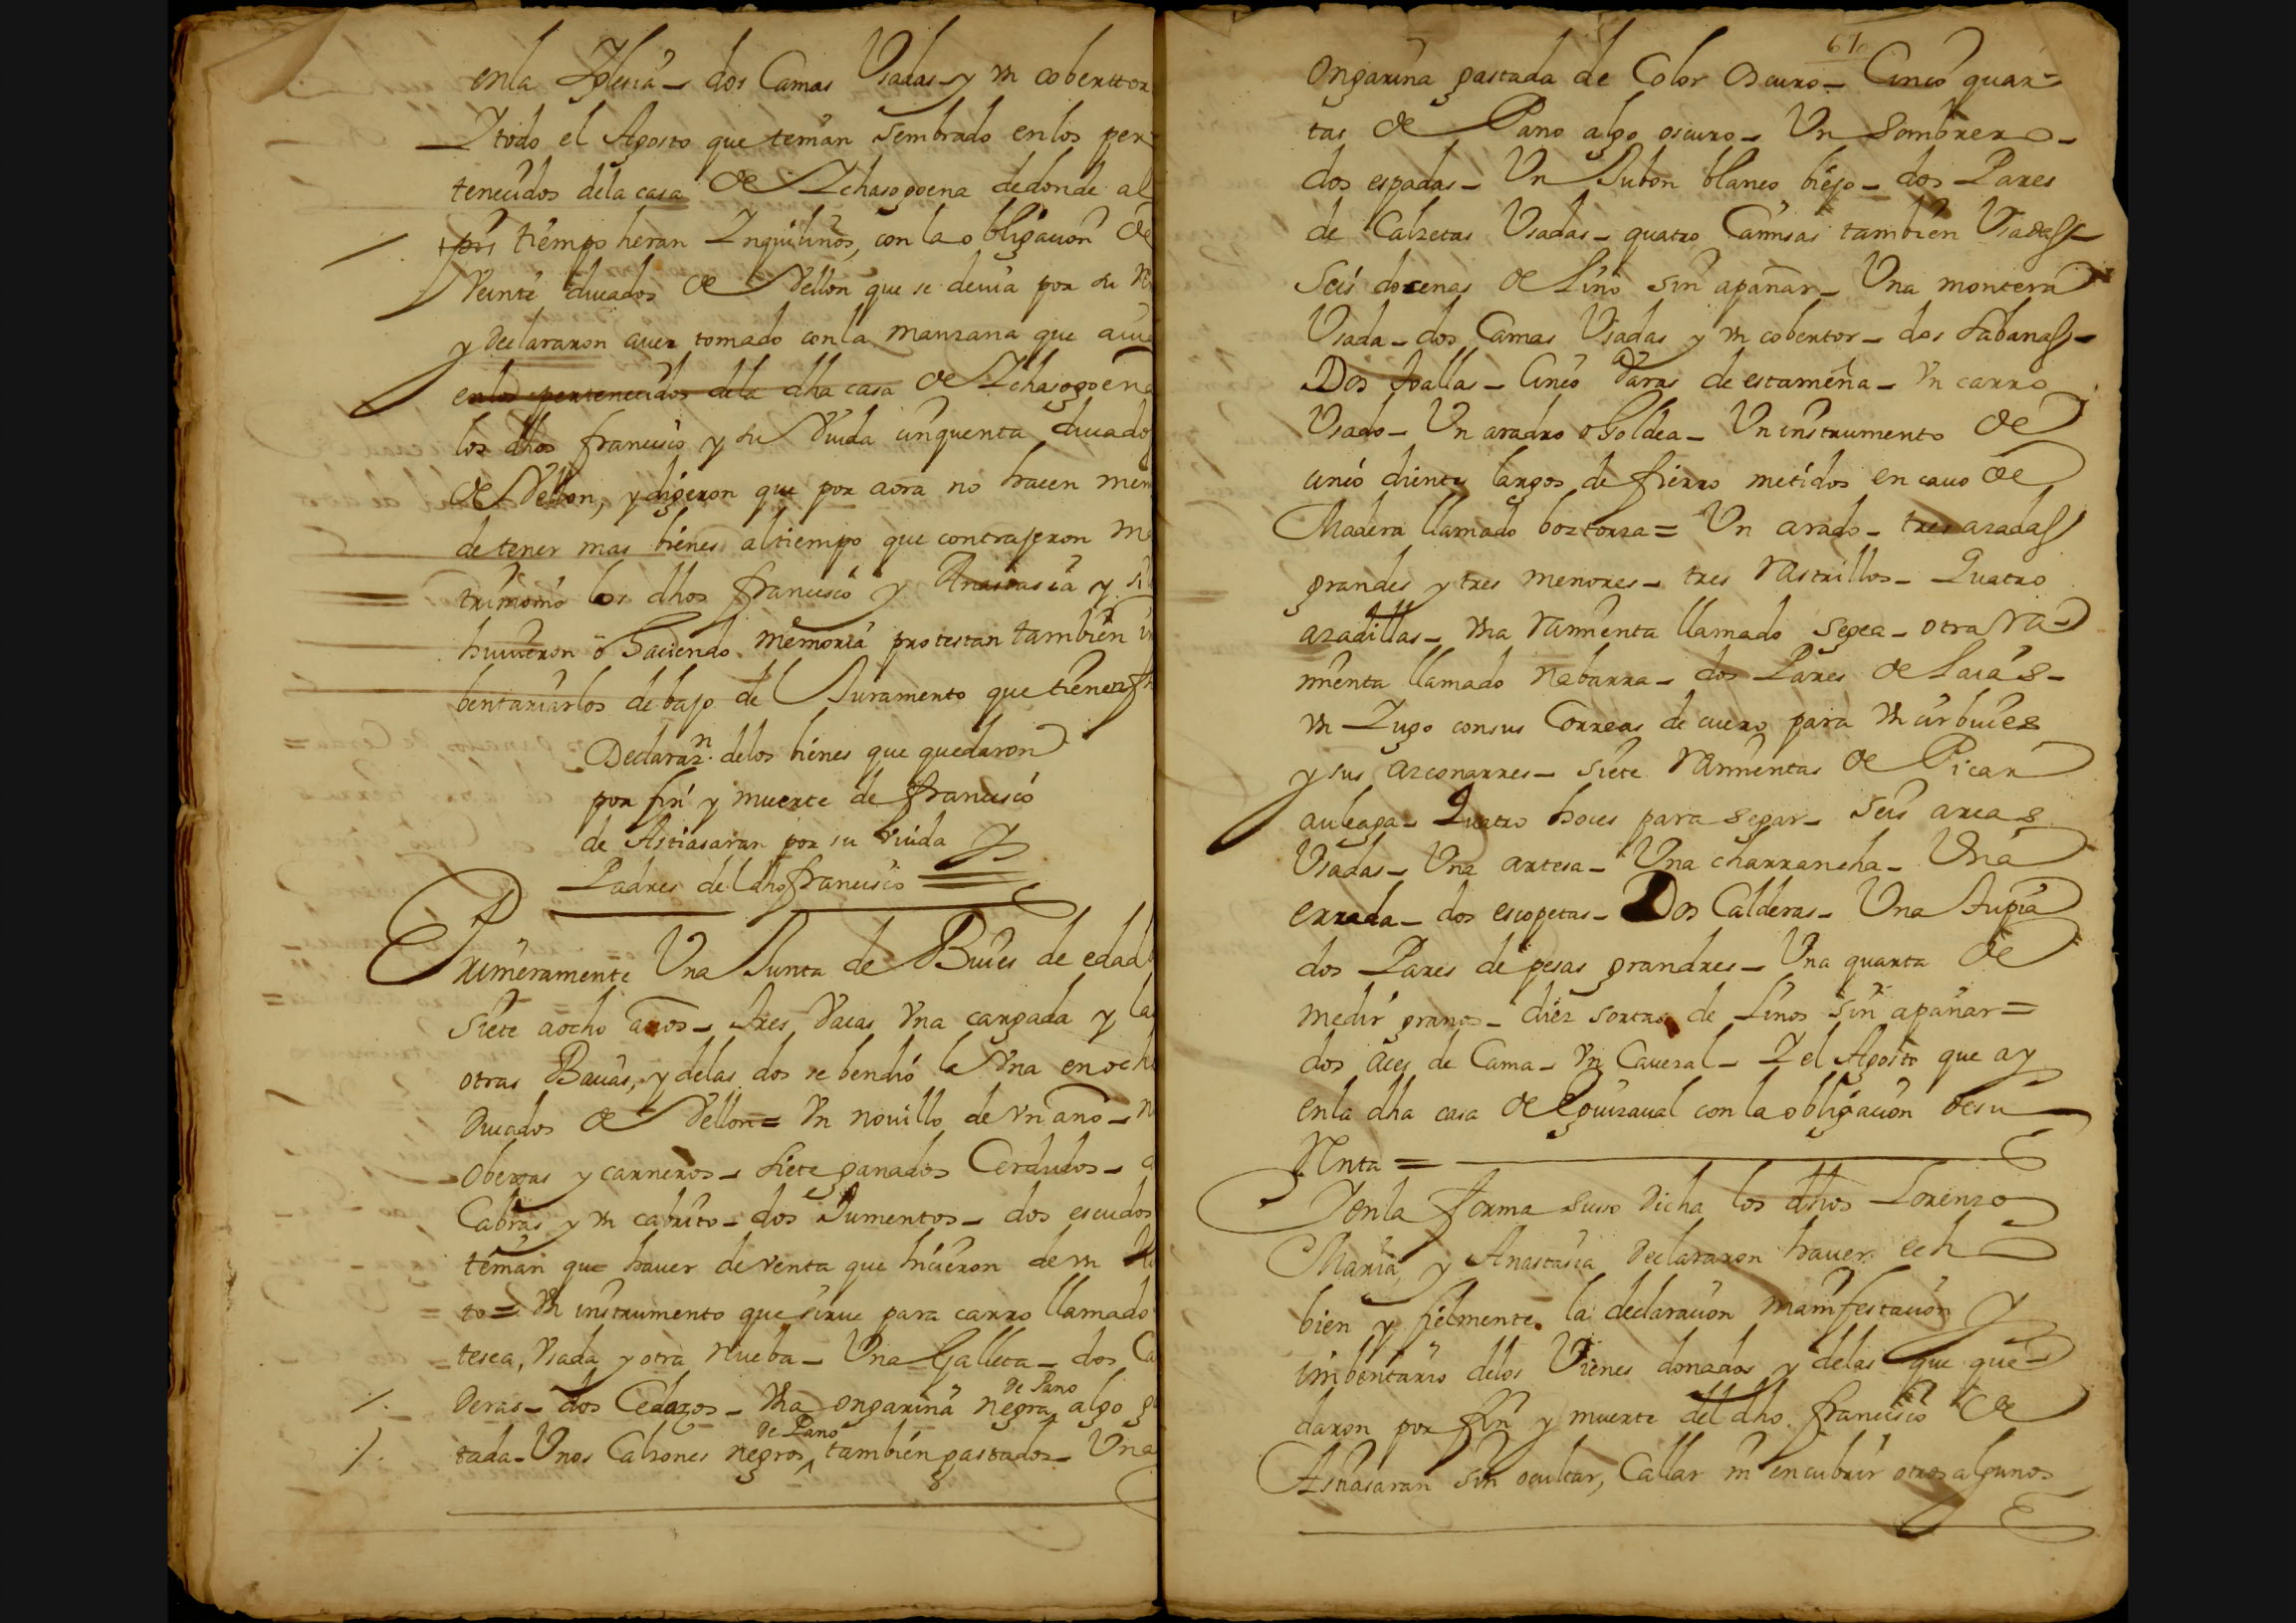 enla Iglesia - dos Camas Vsadas - y vn coberttor
Y todo el Agosto que tenian sembrado enlos per
tenecidos dela casa de Ychasogoena dedonde al
tiempo heran Ynquilinos, con la obligacion de
Veinte ducados de Vellon que se deuia por su
y declararon auer tomado con la manzana que
enlos pertenecidos dela dha casa de Ychasogoena
los dhos francisco y su Viuda cinquenta ducados
de Vellon, y digeron que por aora no hacen
de tener mas bienes altiempo que contrageron
trimonio los dhos francisco y Anastasia y si
huuieron ō haciendo memoria protestan tambien
bentariarlos debajo del Juramento que tienen
Declaraz.n delos bienes que quedaron
por fin y muerte de francisco
de Astiasaran por su viuda y
Padres del dho francisco =
Primeramente Vna Junta de Buies de edad
siete aocho años - tres Vacas vna cargada y las
otras Bacias, y delas dos se bendió la Vna en ocho
Ducados de Vellon = vn nouillo de vn año -
Obejas y carneros - siete ganados Cerdudos -
Cabras y vn cabrito - dos Jumentos - dos escudos
tenian que hauer de venta que hicieron de vn
to = vn instrumento que sirue para carro llamado
tesea, Vsada y otra nueba - Vna Galleta - dos Ca
deras - dos Cedazos - Vna ongarina negra de Pano algo
tada - Vnos Calzones negros de Pano tambien gastados - Vna
670
Ongarina gastada de Color oscuro - Cinco quar=
tas de Pano algo oscuro - Vn Sombrero -
dos espadas - Vn Jubon blanco biejo - dos Pares
de Calzetas Vsadas - quatro Camisas tambien Vsadas -
Seis docenas de Lino sin apañar - Vna montera
Vsada - dos Camas Vsadas y vn cobertor - dos sabanas -
Dos toallas - Cinco Varas de estameña - Vn carro
Vsado - Vn aradro o Goldea - Vn instrumento de
cinco dientes largos de fierro metidos en cauo de
Madera llamado bortorza = Vn arado - tres azadas
grandes y tres menores - tres Rastrillos - Quatro
azadillas - vna rarmenta llamado segea - otra ra=
mienta llamado nabarra - dos Pares de Laias -
vn Yugo consus Correas de cuero para Vncir buies
y sus arconarres - siete rarmentas de Picar
auleaga - Quatro hoces para segar - seis arcas
Vsadas - Vna artesa - Vna charrancha - Vna
errada - dos escopetas - Dos Calderas - Vna tupia
dos Pares de pesas grandres - Vna quarta de
medir granos - diez sortas de Linos sin apañar =
dos aces de Cama - vn Cauezal - Y el Agosto que ay
enla dha casa de Eguizaual con la obligacion de su
Renta =
Y enla forma suso dicha los dhos Lorenzo
Maria, y Anastasia declararon hauer ech
bien y fielmente la declaracion manifestacion y
imbentario delos Vienes donados y delas que que=
daron por fin y muerte del dho francisco de
Astiasaran sin ocultar, Callar ni encubrir otros algunos